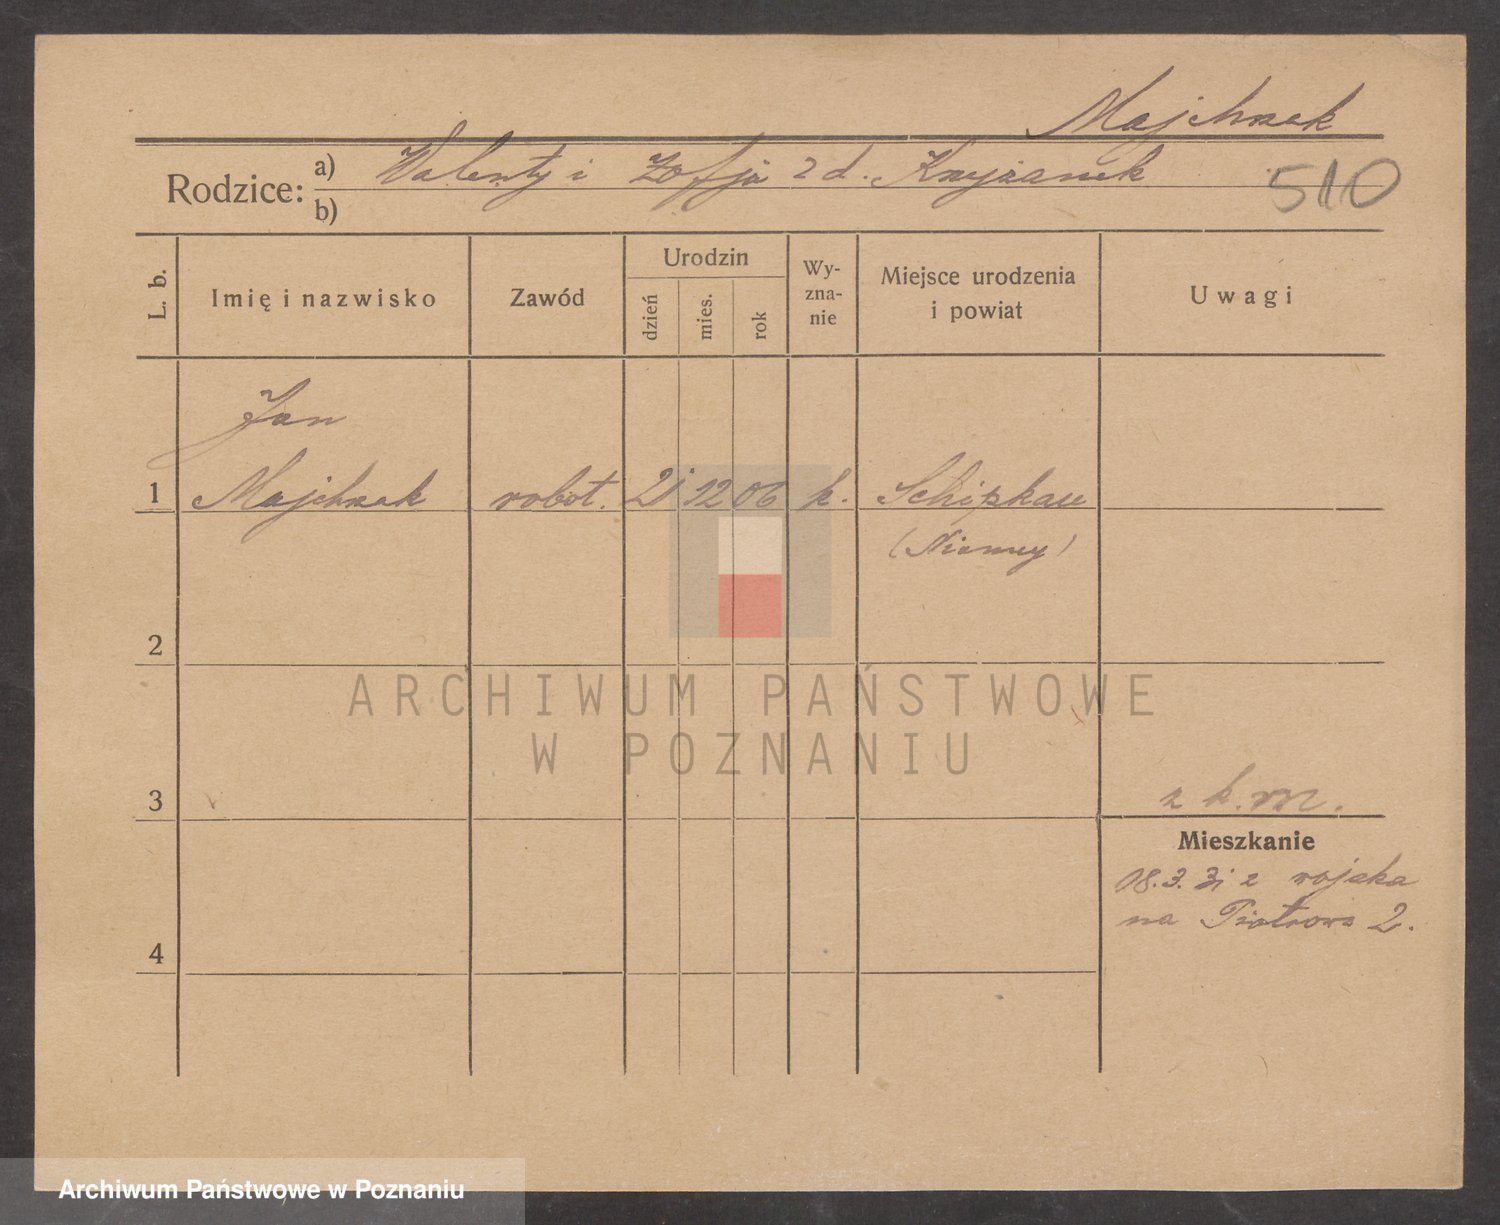 Majchrzak
Rodzice: a) Walenty i Zofja z d. Krzyżanek
b)
510
L. b.
Imię i nazwisko
Zawód
Urodzin
dzień
mies.
rok
Wy-
zna-
nie
Miejsce urodzenia
i powiat
Uwagi
Jan
1 Majchrzak robot. 21 12 06 k. Schipkau
(Niemcy)
2
ARCHIWUM PAŃSTWOWE
W POZNANIU
3
z k. m.
Mieszkanie
18.3.31 z wojska
na Piotrowo 2.
4
Archiwum Państwowe w Poznaniu